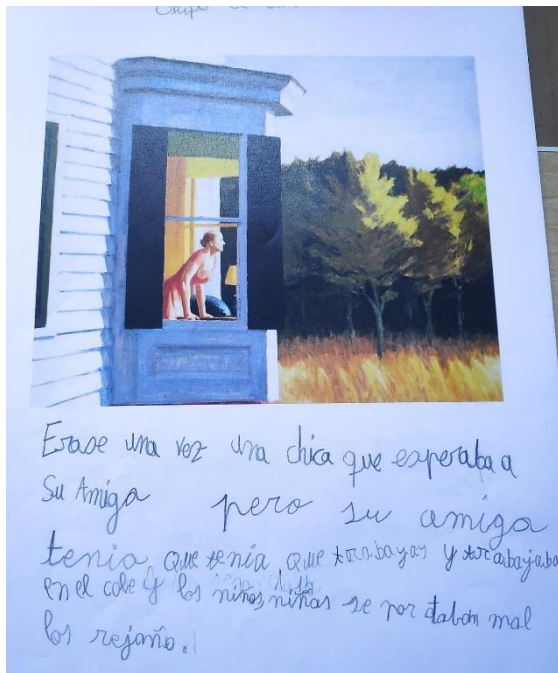 Erase una vez una chica que esperaba a
Su Amiga pero su amiga
tenia que tenía que trabayar y trabajaba
en el cole y los niños, niñas se portabon mal
los rejaño.